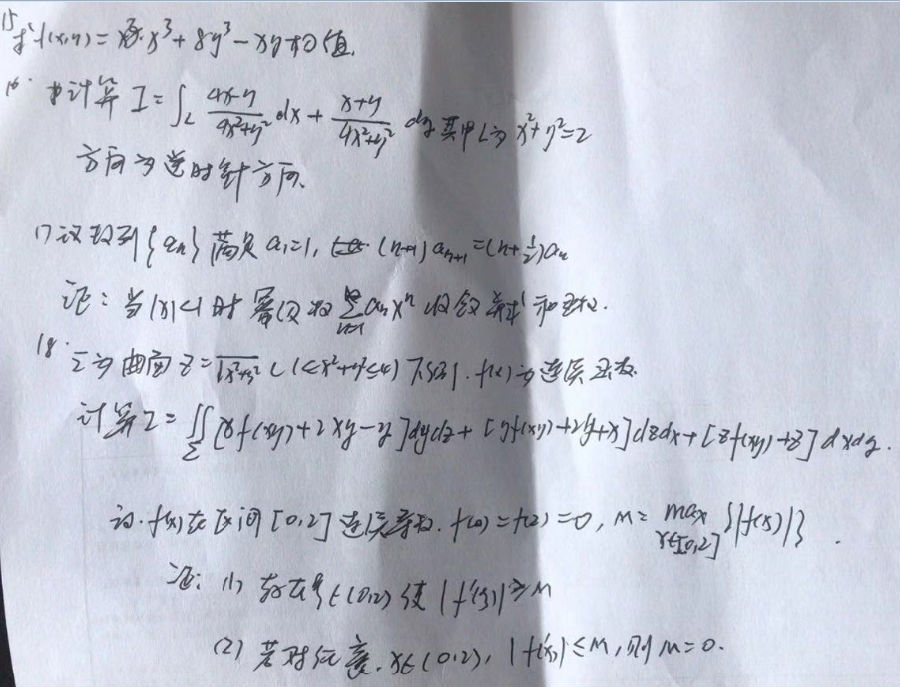 15 求f(x,y)=x³+8y³-xy极值.
16. 计算 I=∫_L (4x-y)/(4x²+y²) dx + (x+y)/(4x²+y²) dy 其中L为 x²+y²=2
方向为逆时针方向.
17 设数列{aₙ} 满足 a₁=1, (n+1)aₙ₊₁=(n+½)aₙ
证: 当|x|<1时 幂级数 ∑_{n=1}^∞ aₙxⁿ 收敛 并求 和函数.
18. Σ为曲面 z=√(x²+y²) (1≤x²+y²≤4) 下侧. f(x)为连续函数.
计算I=∬_Σ [xf(xy)+2xy-y]dydz+[yf(xy)+2y+x]dzdx+[zf(xy)+z]dxdy.
设.f(x)在区间[0,2]连续导数. f(0)=f(2)=0, M= max_{x∈[0,2]} {|f(x)|} .
证: (1) 存在ξ∈(0,2) 使 |f'(ξ)|≥M
(2) 若对任意.x∈(0,2), |f'(x)|≤M, 则 M=0.